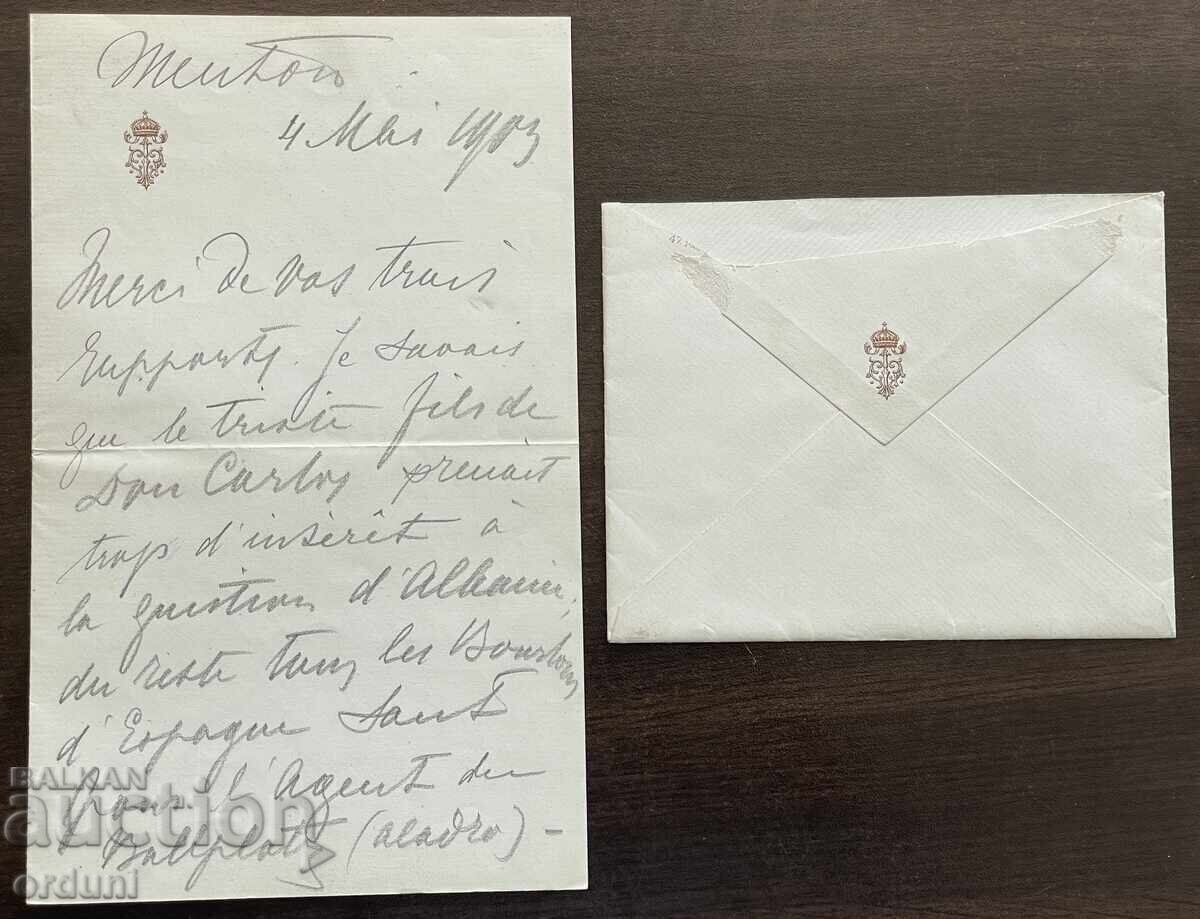 Menton
4 Mai 1903
Merci de vos trois
rapports. Je savais
que le triste fils de
Don Carlos prenait
trop d'intérêt à
la question d'Albanie,
du reste tous les Bourbons
d'Espagne sont
pour l'Agent du
Ballplatz (aladro) -
BALKAN
auction
orduni